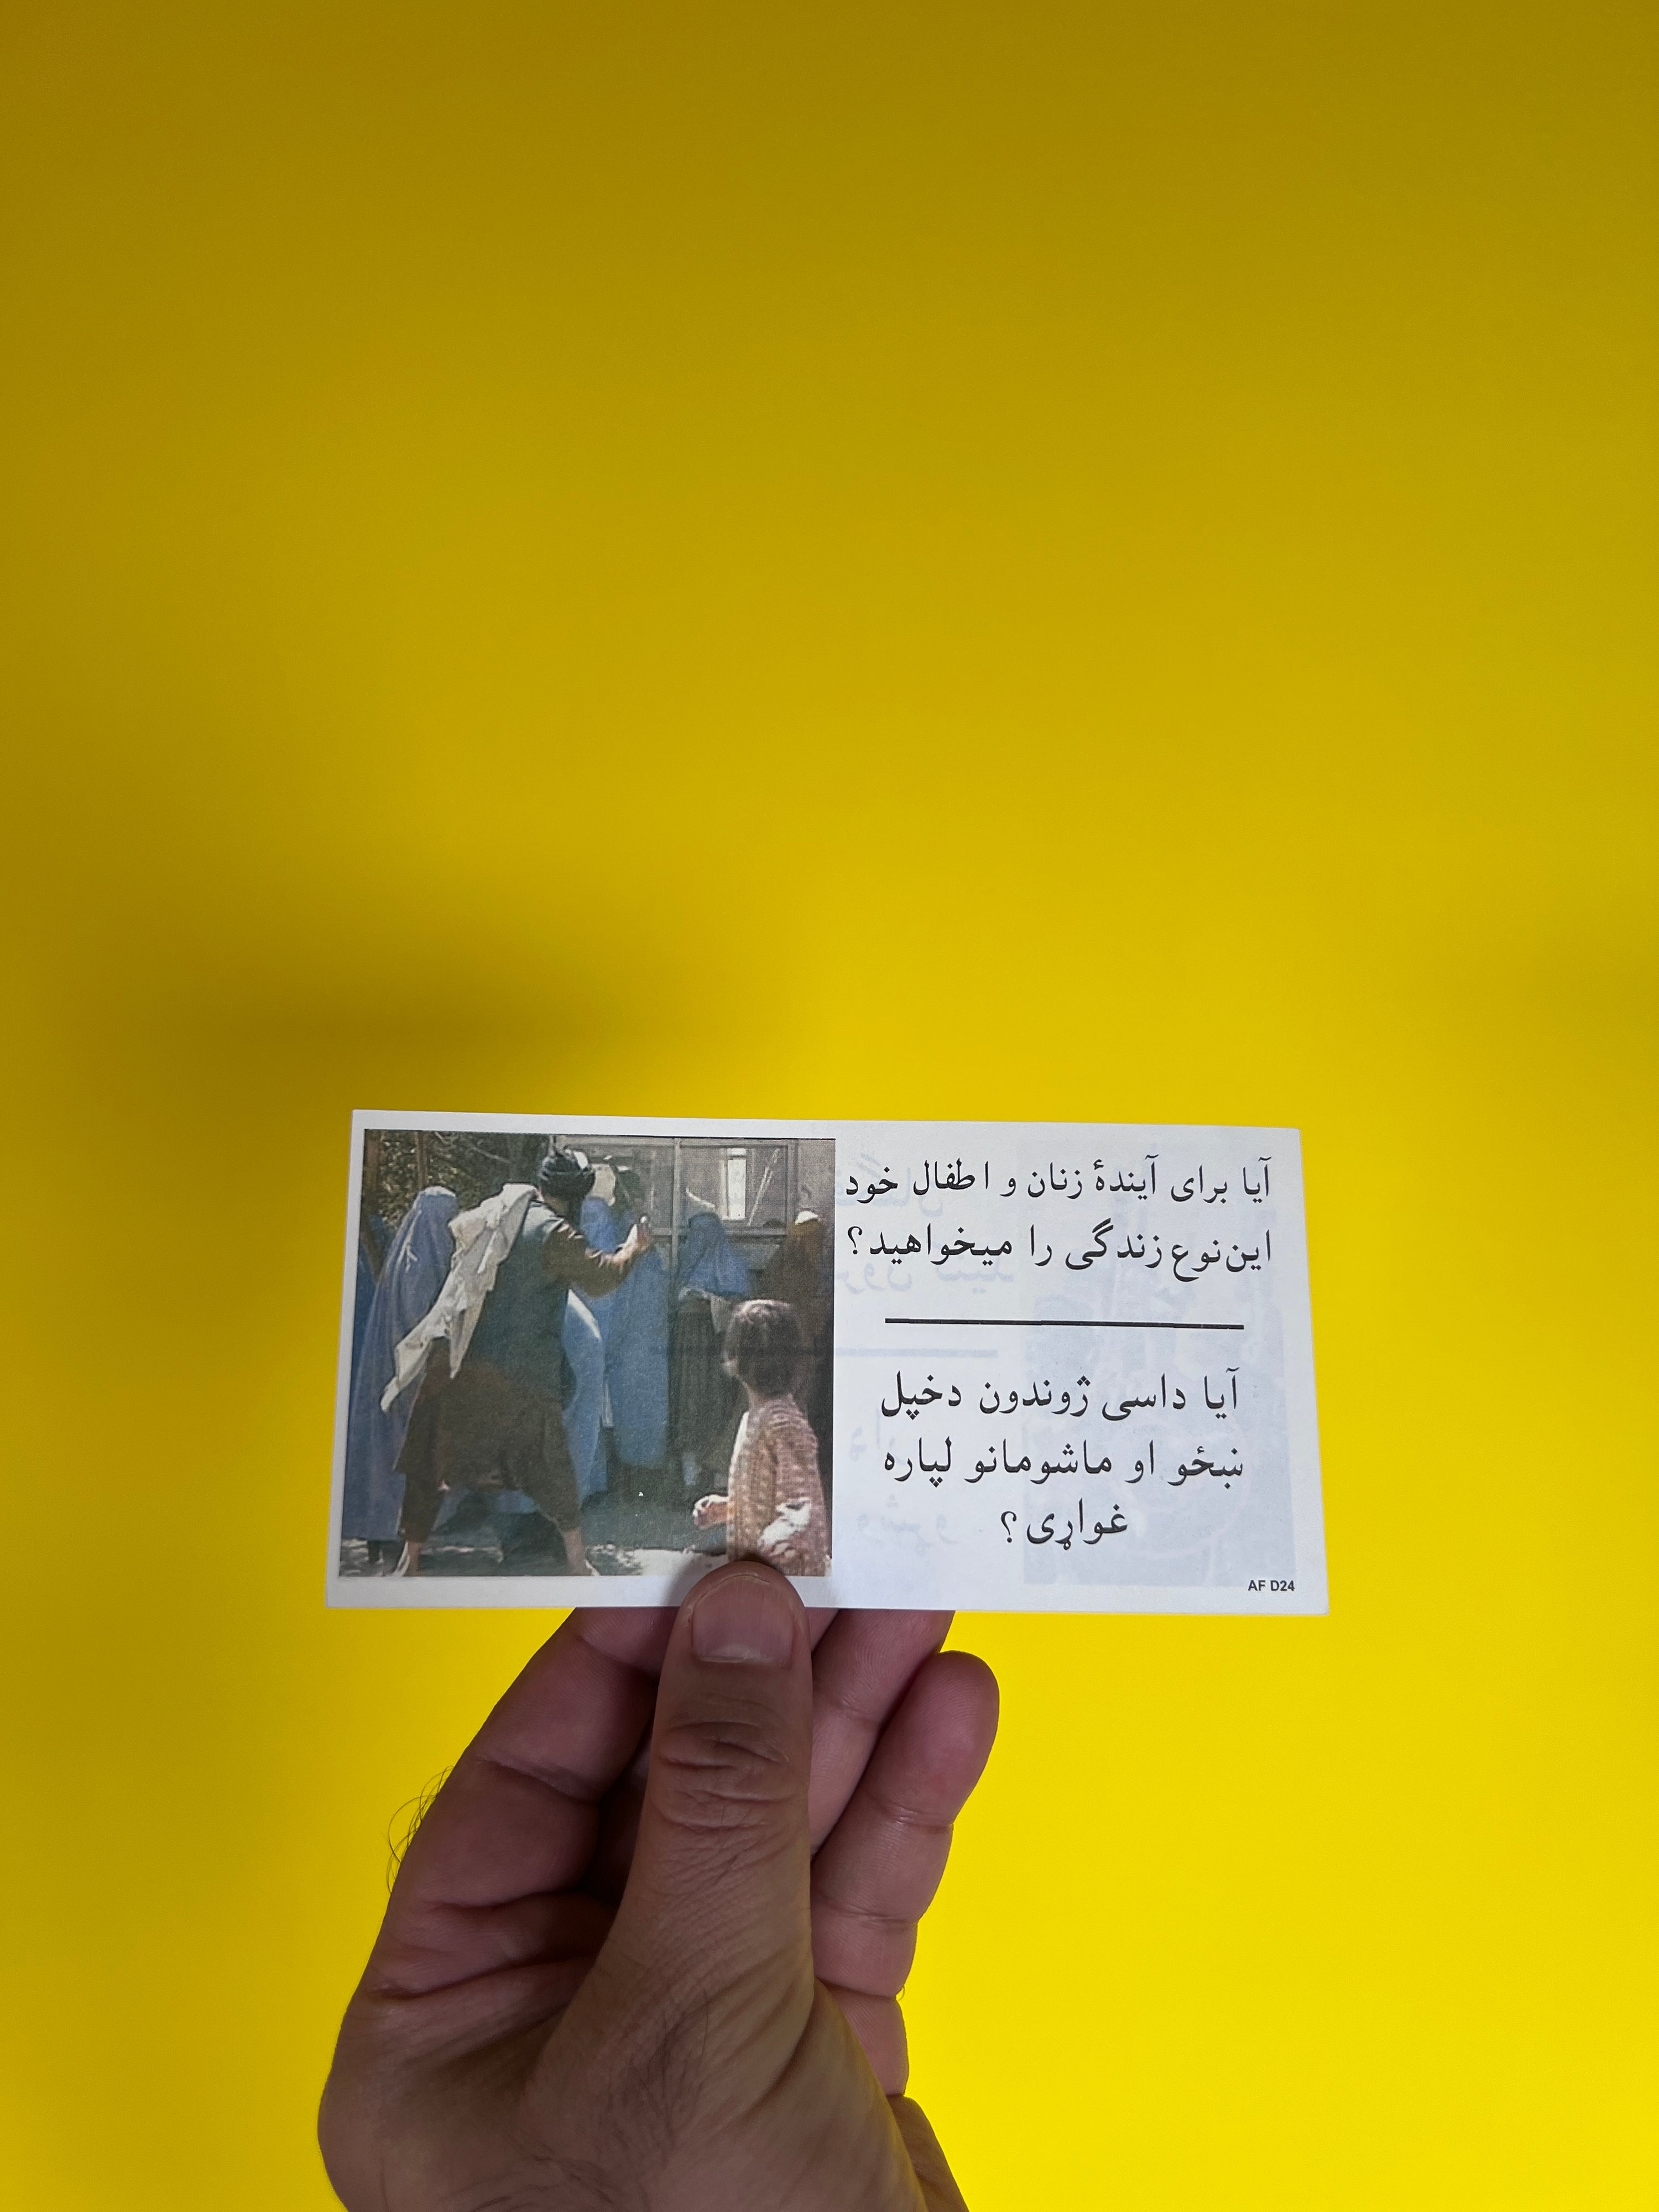 آیا برای آیندهٔ زنان و اطفال خود
این نوع زندگی را میخواهید؟
آیا داسی ژوندون دخپل
ښځو او ماشومانو لپاره
غواړی؟
AF D24